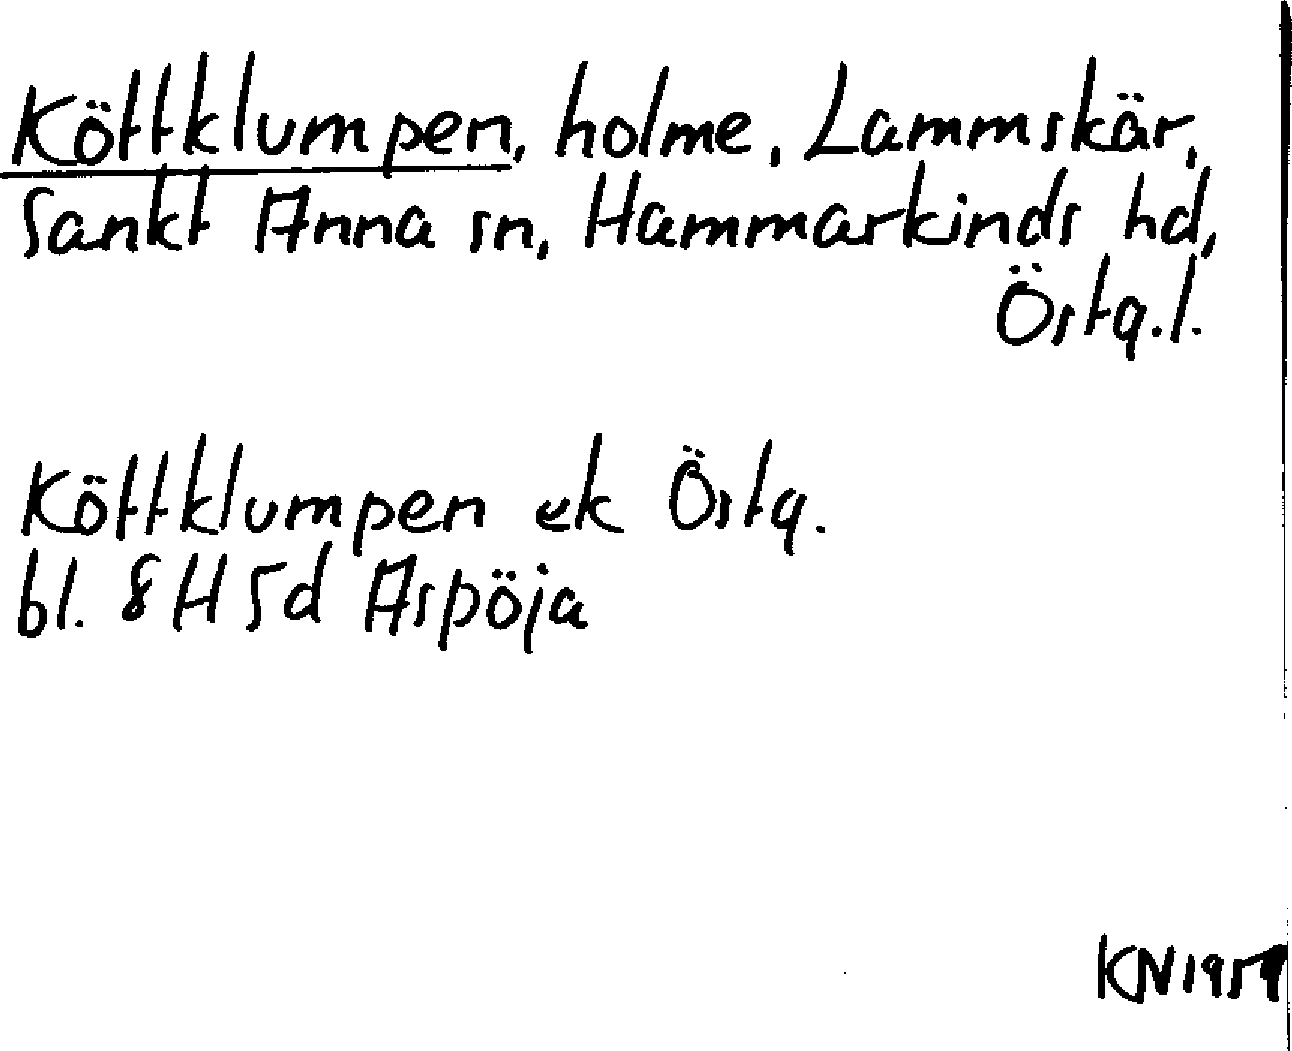 Köttklumpen, holme, Lammskär,
Sankt Anna sn, Hammarkinds hd,
Östg.l.
Köttklumpen ek Östg.
bl. 8H5d Aspöja